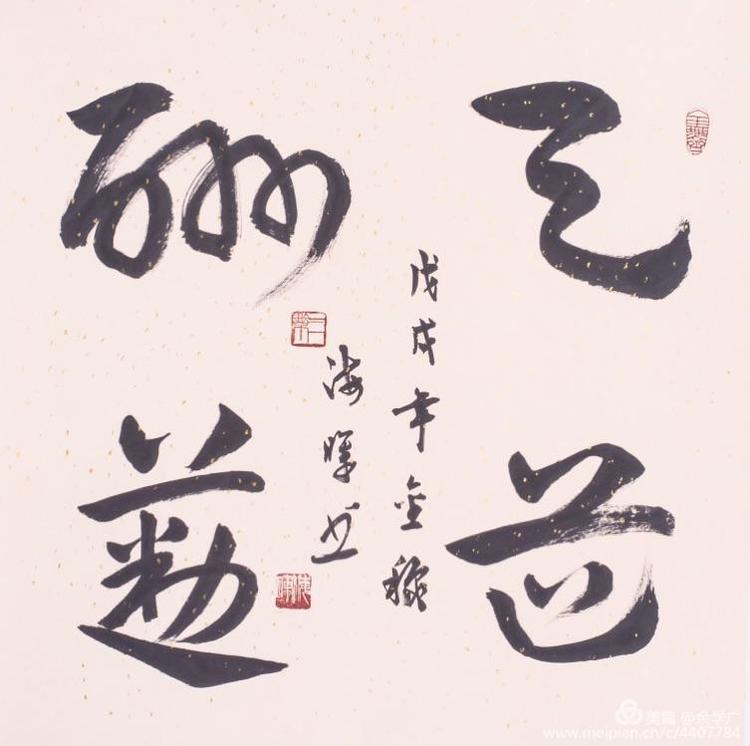 天道
酬勤
戊戌年金秋
海晖书
美篇 @余学广
www.meipian.cn/c/4407784